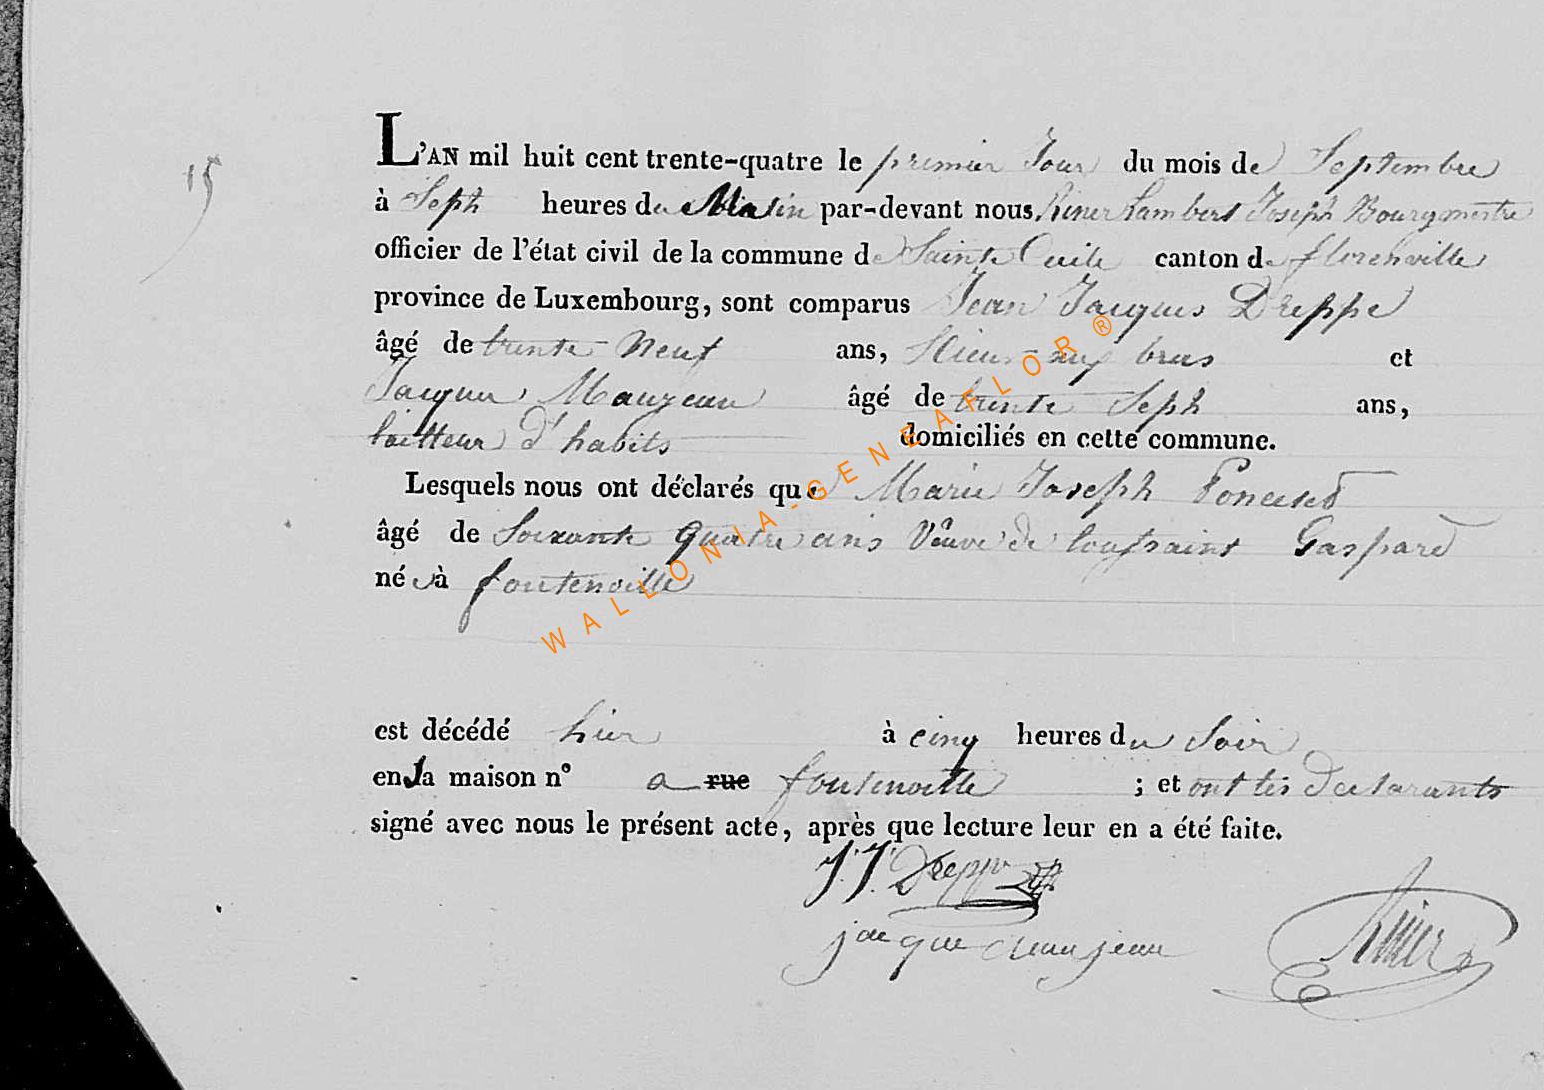 15
L'AN mil huit cent trente-quatre le premier Jour du mois de Septembre
à Seph heures du Matin par-devant nous Riner Lambert Joseph Bourgmestre
officier de l'état civil de la commune de Sainte Cecile canton de florenville
province de Luxembourg, sont comparus Jean Jacques Dreppe
âgé de trente Neuf ans, et
Jacques Maujean âgé de trente Seph ans,
tailleur d'habits domiciliés en cette commune.
Lesquels nous ont déclarés que Marie Joseph Poncelet
âgé de Soixante quatre ans Veuve de toussaint Gaspard
né à fontenoille
est décédé hier à cinq heures du Soir
en la maison n° a rue fontenoille ; et ont les declarants
signé avec nous le présent acte, après que lecture leur en a été faite.
J.J. Dreppe
jacque maujean
Riner
WALLONIA-GENEAFLOR®